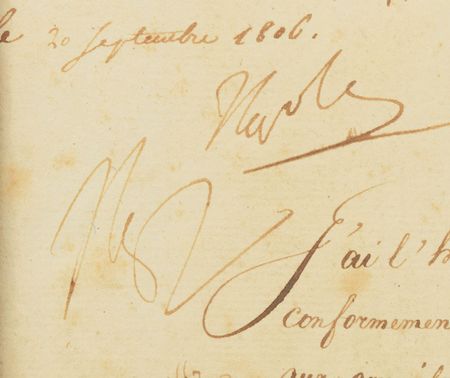 le 20 Septembre 1806.
Napole
Np
J'ai l'h
conformemen